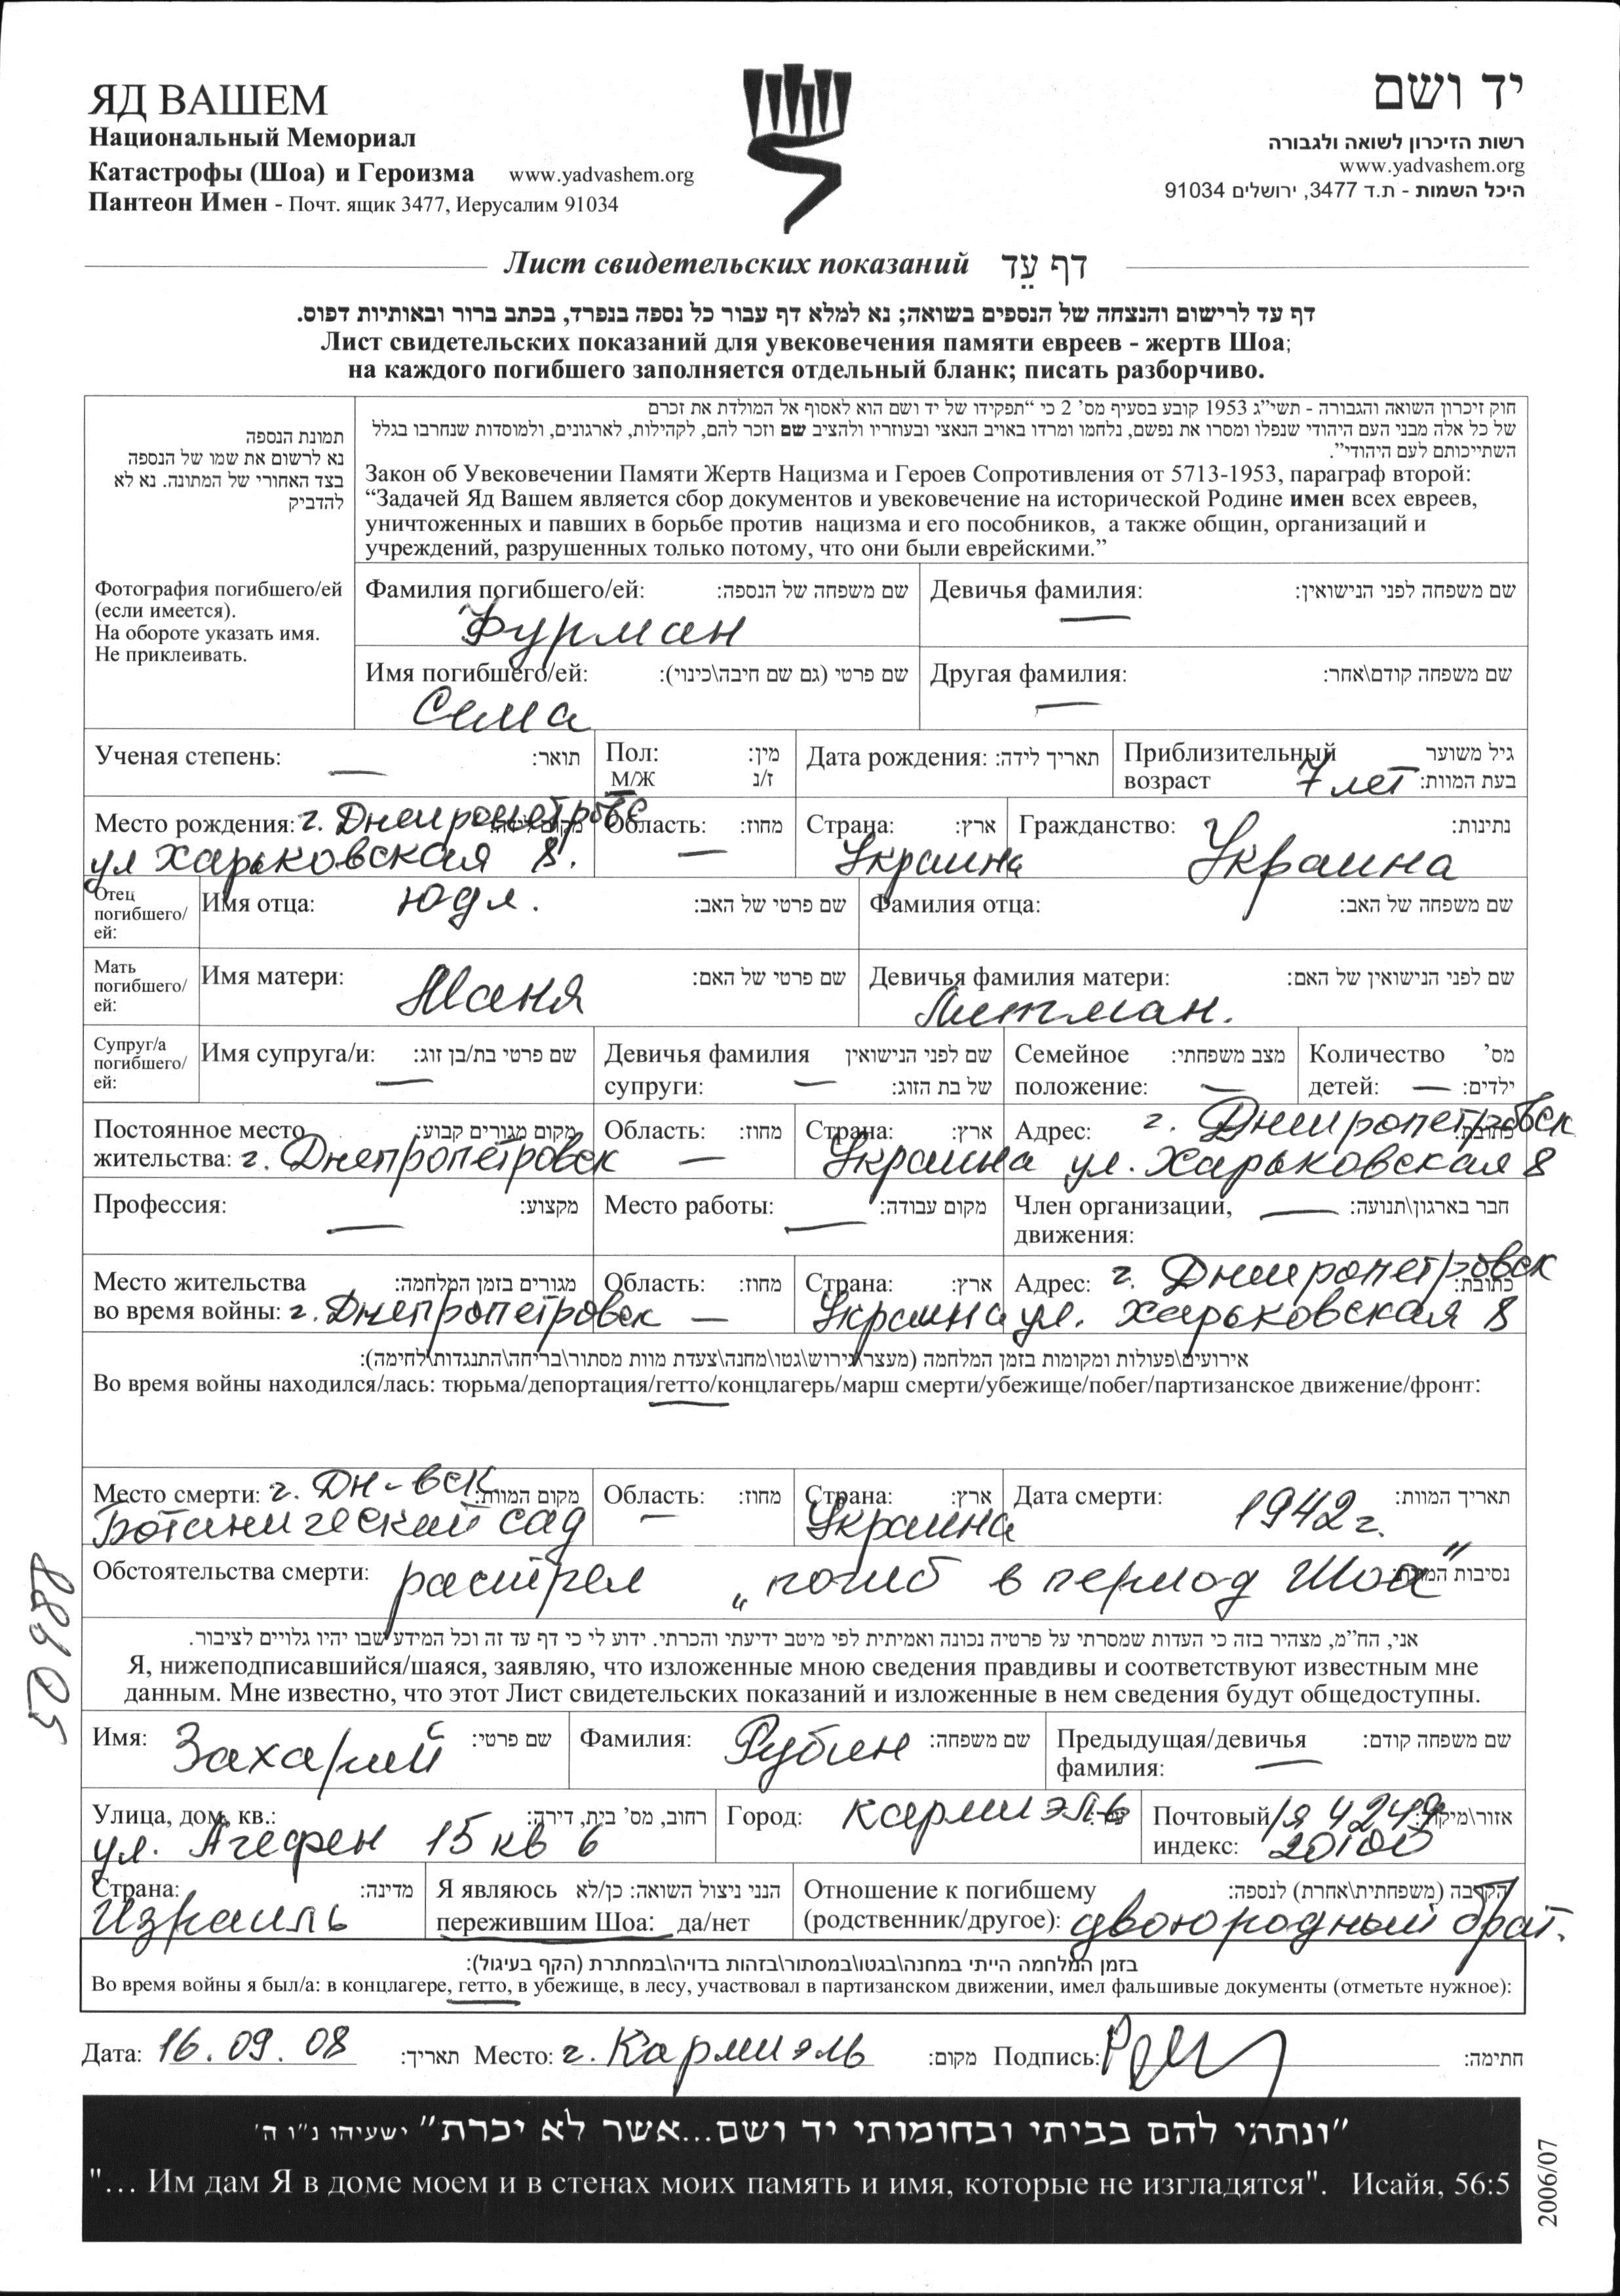 ЯД ВАШЕМ
Национальный Мемориал
Катастрофы (Шоа) и Героизма www.yadvashem.org
Пантеон Имен - Почт. ящик 3477, Иерусалим 91034
יד ושם
רשות הזיכרון לשואה ולגבורה
www.yadvashem.org
היכל השמות - ת.ד 3477, ירושלים 91034
Лист свидетельских показаний דף עֵד
דף עד לרישום והנצחה של הנספים בשואה; נא למלא דף עבור כל נספה בנפרד, בכתב ברור ובאותיות דפוס.
Лист свидетельских показаний для увековечения памяти евреев - жертв Шоа;
на каждого погибшего заполняется отдельный бланк; писать разборчиво.
תמונת הנספה
נא לרשום את שמו של הנספה
בצד האחורי של המתונה. נא לא
להדביק
Фотография погибшего/ей
(если имеется).
На обороте указать имя.
Не приклеивать.
חוק זיכרון השואה והגבורה - תשי"ג 1953 קובע בסעיף מס' 2 כי "תפקידו של יד ושם הוא לאסוף אל המולדת את זכרם
של כל אלה מבני העם היהודי שנפלו ומסרו את נפשם, נלחמו ומרדו באויב הנאצי ובעוזריו ולהציב שם וזכר להם, לקהילות, לארגונים, ולמוסדות שנחרבו בגלל
השתייכותם לעם היהודי".
Закон об Увековечении Памяти Жертв Нацизма и Героев Сопротивления от 5713-1953, параграф второй:
“Задачей Яд Вашем является сбор документов и увековечение на исторической Родине имен всех евреев,
уничтоженных и павших в борьбе против нацизма и его пособников, а также общин, организаций и
учреждений, разрушенных только потому, что они были еврейскими.”
Фамилия погибшего/ей: שם משפחה של הנספה:
Фурман
Девичья фамилия: שם משפחה לפני הנישואין:
—
Имя погибшего/ей: שם פרטי (גם שם חיבה\כינוי):
Сема
Другая фамилия: שם משפחה קודם\אחר:
—
Ученая степень: — תואר:
Пол: מין:
М/Ж ז/נ
Дата рождения: תאריך לידה:
Приблизительный גיל משוער
возраст 7 лет בעת המוות:
Место рождения: г. Днепропетровс מקום לידה:
ул Харьковская 8.
Область: מחוז:
—
Страна: ארץ:
Украина
Гражданство: נתינות:
Украина
Отец
погибшего/
ей:
Имя отца: Юдл. שם פרטי של האב:
Фамилия отца: שם משפחה של האב:
Мать
погибшего/
ей:
Имя матери: Маня שם פרטי של האם:
Девичья фамилия матери: שם לפני הנישואין של האם:
Литман.
Супруг/а
погибшего/
ей:
Имя супруга/и: שם פרטי בת/בן זוג:
—
Девичья фамилия שם לפני הנישואין
супруги: — של בת הזוג:
Семейное מצב משפחתי:
положение: —
Количество מס'
детей: — ילדים:
Постоянное место מקום מגורים קבוע:
жительства: г. Днепропетровск
Область: מחוז:
—
Страна: ארץ:
Украина
Адрес: г. Днепропетровск כתובת:
ул. Харьковская 8
Профессия: — מקצוע:
Место работы: — מקום עבודה:
Член организации, — חבר בארגון\תנועה:
движения:
Место жительства מגורים בזמן המלחמה:
во время войны: г. Днепропетровск
Область: מחוז:
—
Страна: ארץ:
Украина
Адрес: г. Днепропетровск כתובת:
ул. Харьковская 8
אירועים\פעולות ומקומות בזמן המלחמה (מעצר\גירוש\גטו\מחנה\צעדת מוות מסתור\בריחה\התנגדות\לחימה):
Во время войны находился/лась: тюрьма/депортация/гетто/концлагерь/марш смерти/убежище/побег/партизанское движение/фронт:
Место смерти: г. Дн-вск מקום המוות:
Ботанический сад
Область: מחוז:
—
Страна: ארץ:
Украина
Дата смерти: 1942 г. תאריך המוות:
Обстоятельства смерти: расстрел „погиб в период Шоа“ נסיבות המוות:
אני, הח"מ, מצהיר בזה כי העדות שמסרתי על פרטיה נכונה ואמיתית לפי מיטב ידיעתי והכרתי. ידוע לי כי דף עד זה וכל המידע שבו יהיו גלויים לציבור.
Я, нижеподписавшийся/шаяся, заявляю, что изложенные мною сведения правдивы и соответствуют известным мне
данным. Мне известно, что этот Лист свидетельских показаний и изложенные в нем сведения будут общедоступны.
Имя: Захарий שם פרטי:
Фамилия: Рубин שם משפחה:
Предыдущая/девичья שם משפחה קודם:
фамилия: —
Улица, дом, кв.: רחוב, מס' בית, דירה:
ул. Агефен 15 кв 6
Город: Кармиэль עיר:
Почтовый п/я 4249 אזור\מיקוד:
индекс: 20100
Страна: מדינה:
Израиль
Я являюсь הנני ניצול השואה: כן/לא
пережившим Шоа: да/нет
Отношение к погибшему הקרבה (משפחתית\אחרת) לנספה:
(родственник/другое): двоюродный брат.
בזמן המלחמה הייתי במחנה\בגטו\במסתור\בזהות בדויה\במחתרת (הקף בעיגול):
Во время войны я был/а: в концлагере, гетто, в убежище, в лесу, участвовал в партизанском движении, имел фальшивые документы (отметьте нужное):
Дата: 16.09.08 תאריך: Место: г. Кармиэль מקום: Подпись: חתימה:
"ונתתי להם בביתי ובחומותי יד ושם...אשר לא יכרת" ישעיהו נ"ו ה'
"... Им дам Я в доме моем и в стенах моих память и имя, которые не изгладятся". Исайя, 56:5
2006/07